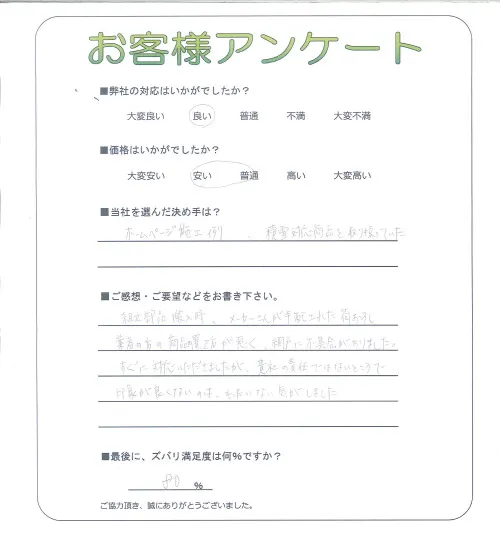 お客様アンケート
■弊社の対応はいかがでしたか？
大変良い 良い 普通 不満 大変不満
■価格はいかがでしたか？
大変安い 安い 普通 高い 大変高い
■当社を選んだ決め手は？
ホームページ施工例 、積雪対応商品を取り扱っていた
■ご感想・ご要望などをお書き下さい。
購入時、メーカーさんが手配された荷おろし
業者の方の商品の置き方が悪く、網戸に不具合がありました。
すぐに対応いただきましたが、貴社の責任ではないところで
印象が良くないのは、もったいない気がしました
■最後に、ズバリ満足度は何%ですか？
80 %
ご協力頂き、誠にありがとうございました。